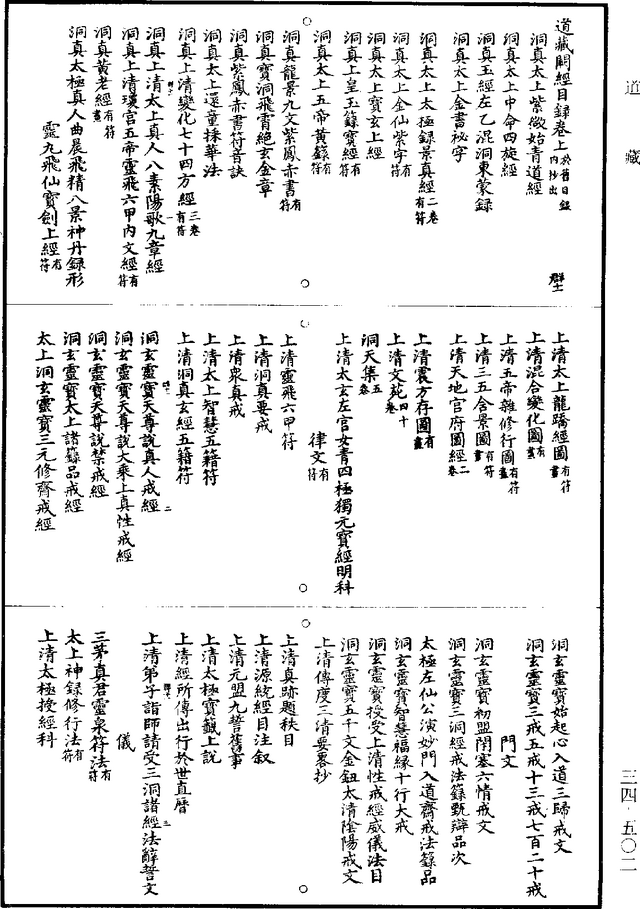 道藏
三四·五〇二
道藏闕經目錄卷上於舊目錄內抄出 羣一
洞真太上紫微始青道經
洞真太上中命四旋經
洞真玉經左乙混洞東蒙錄
洞真太上金書秘字
洞真太上太極錄景真經二卷有符
洞真太上金仙紫字有符
洞真太上寶玄上經
洞真上皇玉籙寶經有符
洞真太上五帝黃籙有符
洞真龍景九文紫鳳赤書有符
洞真寶洞飛霄絕玄金章
洞真紫鳳赤書符音訣
洞真太上還童採華法
洞真上清變化七十四方經三卷有符
洞真上清太上真人八素陽歌九章經
洞真上清瓊宮五帝靈飛六甲內文經有符
洞真黃老經有符畫
洞真太極真人曲晨飛精八景神丹錄形
靈九飛仙寶劍上經有符
上清太上龍蹻經圖有符畫
上清混合變化圖有畫
上清五帝雜修行圖有符畫
上清三五含景圖有符畫
上清天地官府圖經二卷
上清震方存圖有畫
上清文苑四十卷
洞天集五卷
上清太玄左官女青四極獨元寶經明科
律文有符
上清靈飛六甲符
上清洞真要戒
上清眾真戒
上清太上智慧五籍符
上清洞真玄經五籍符
洞玄靈寶天尊說真人戒經
洞玄靈寶天尊說大乘上真性戒經
洞玄靈寶天尊說禁戒經
洞玄靈寶太上諸籙品戒經
太上洞玄靈寶三元修齋戒經
洞玄靈寶始起心入道三歸戒文
洞玄靈寶三戒五戒十三戒七百二十戒
門文
洞玄靈寶初盟閉塞六情戒文
洞玄靈寶三洞經戒法籙甄辯品次
太極左仙公演妙門入道齋戒法籙品
洞玄靈寶智慧福緣十行大戒
洞玄靈寶授受上清性戒經威儀法目
洞玄靈寶五千文金鈕太清陰陽戒文
上清傳度三清要畧抄
上清真跡題秩目
上清源統經目注叙
上清元盟九誓舊事
上清太極寶籤上說
上清經所傳出行於世直曆
上清弟子詣師請受三洞諸經法辭誓文
儀
三茅真君靈泉符法有符
太上神錄修行法有符
上清太極授經科